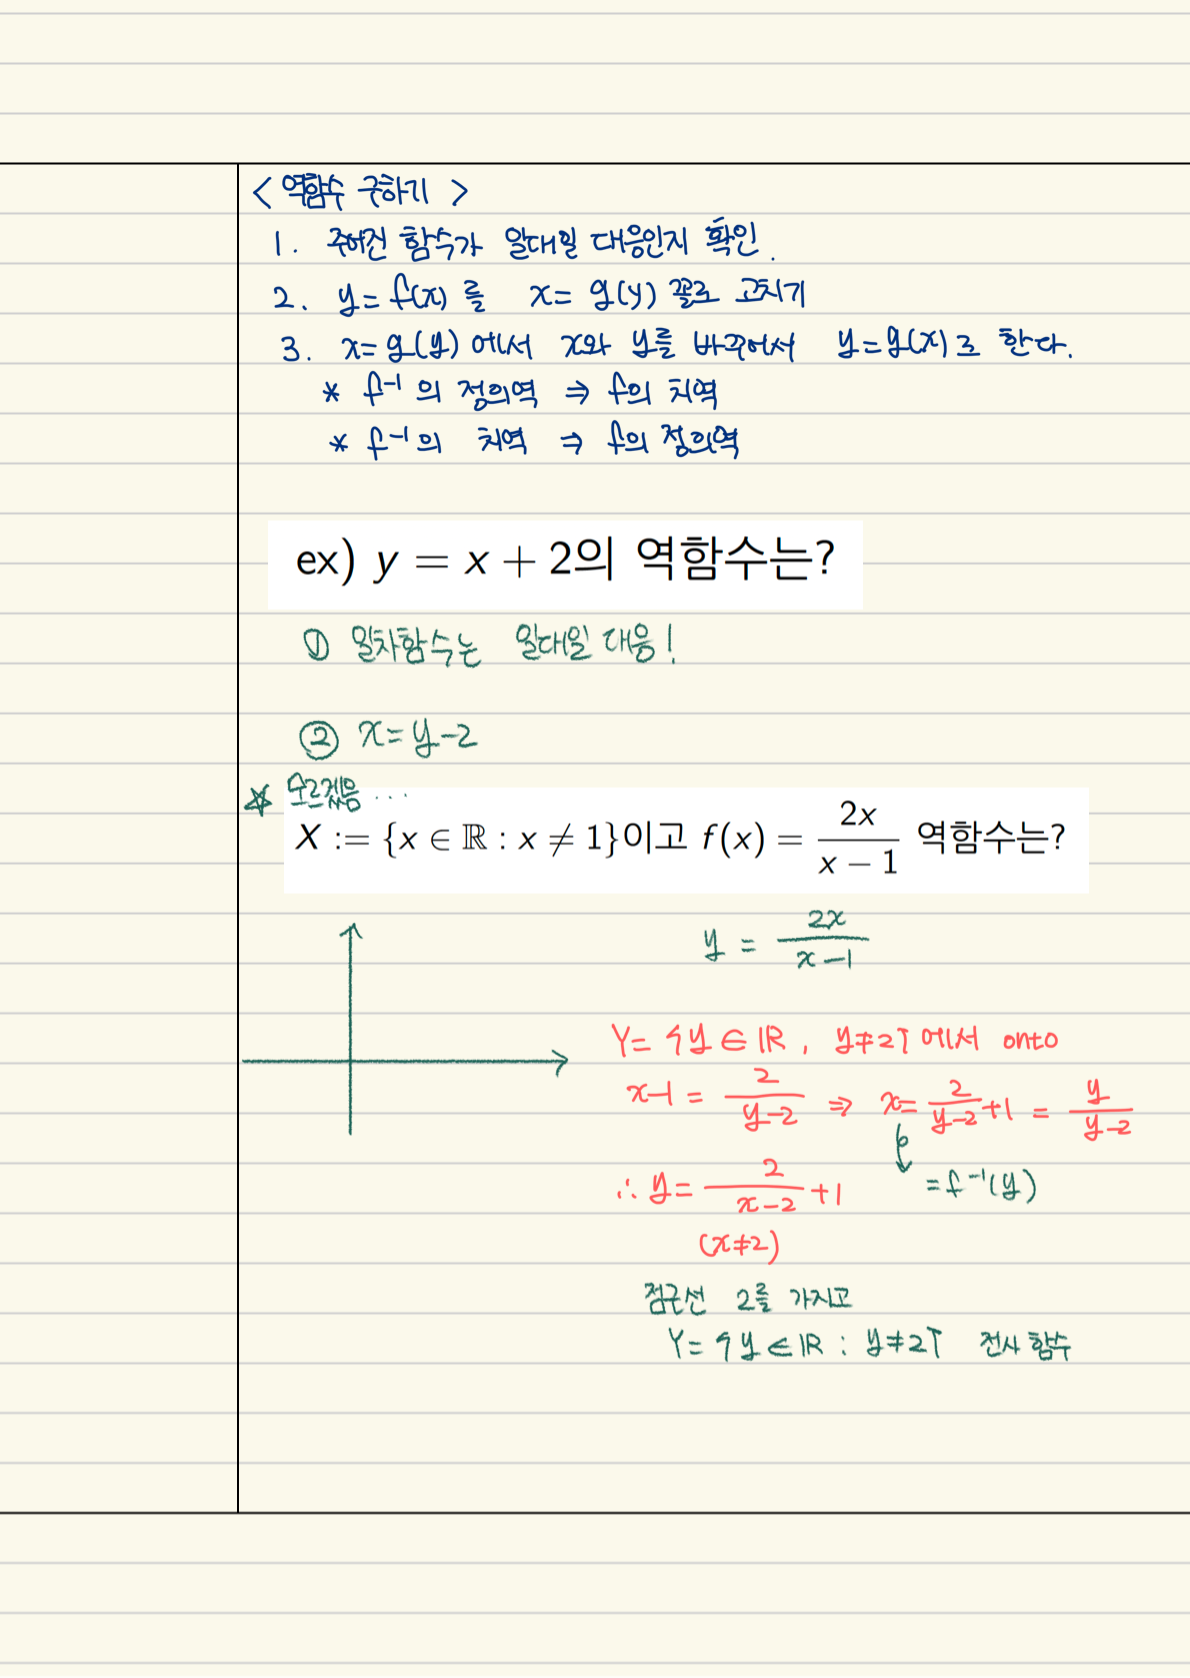 < 역함수 구하기 >
1. 주어진 함수가 일대일 대응인지 확인.
2. y = f(x) 를 x = g(y) 꼴로 고치기
3. x = g(y) 에서 x와 y를 바꾸어서 y = g(x)로 한다.
* f⁻¹ 의 정의역 ⇒ f의 치역
* f⁻¹ 의 치역 ⇒ f의 정의역
ex) y = x + 2의 역함수는?
① 일차함수는 일대일 대응!
② x = y - 2
☆ 모르겠음 ...
X := {x ∈ ℝ : x ≠ 1}이고 f(x) = 2x/(x − 1) 역함수는?
y = 2x/(x-1)
Y = {y ∈ ℝ, y ≠ 2} 에서 onto
x-1 = 2/(y-2) ⇒ x = 2/(y-2) + 1 = y/(y-2)
= f⁻¹(y)
∴ y = 2/(x-2) + 1
(x ≠ 2)
점근선 2를 가지고
Y = {y ∈ ℝ : y ≠ 2} 전사 함수